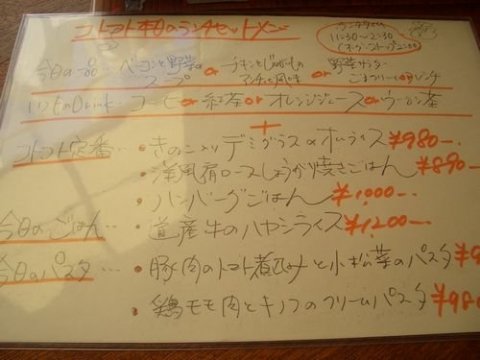 コトコト本日のランチセットメニュー
ランチタイム
11:30〜2:30
今日の一品… ベーコンと野菜のスープ or チキンとじゃがいもの or 野菜サラダ
いつものDrink… コーヒー or 紅茶 or オレンジジュース or ウーロン茶
+
コトコト定番… ・きのこ入りデミグラスのオムライス ¥980-
・洋風肩ロースしょうが焼きごはん ¥890-
・ハンバーグごはん ¥1,000-
今日のごはん… ・道産牛のハヤシライス ¥1,200-
今日のパスタ… ・豚肉のトマト煮込みと小松菜のパスタ ¥9
・鶏モモ肉とキノコのクリームパスタ ¥98